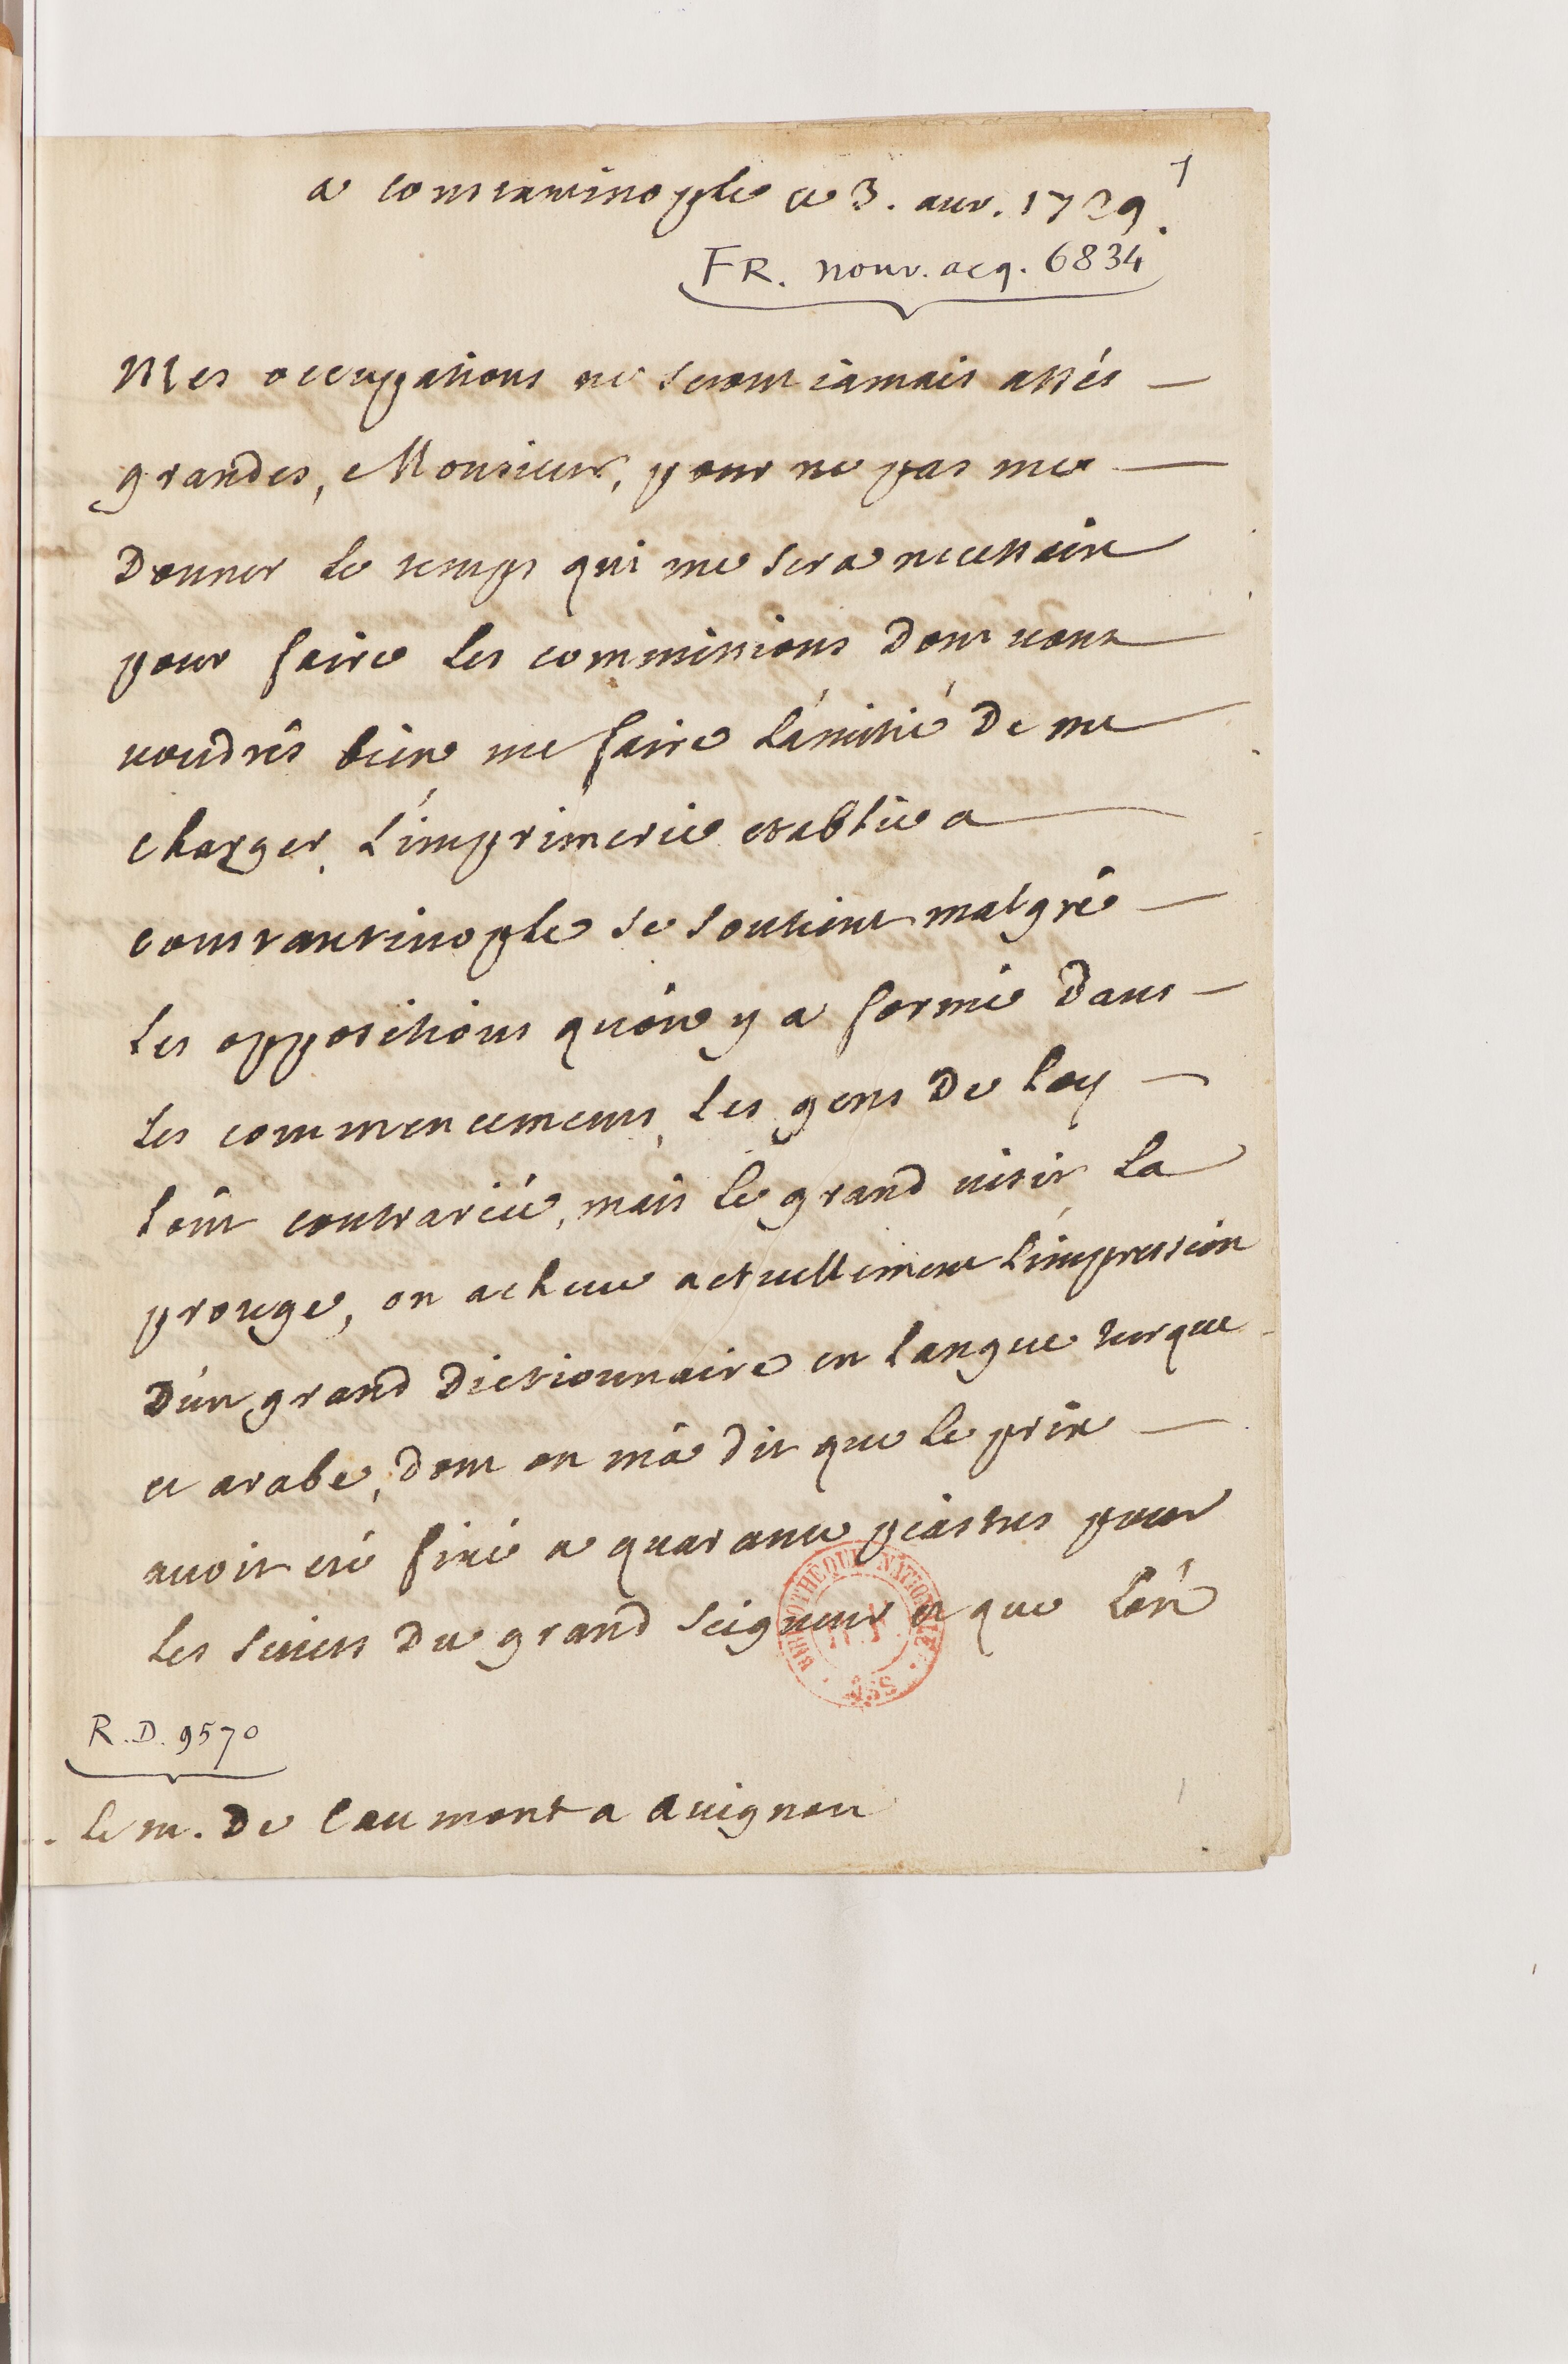 1
a constantinople ce 3. avr. 1729.
FR. nouv. acq. 6834
Mes occupations ne seront iamais assés —
grandes, Monsieur, pour ne pas me —
Donner le temps qui me sera necessaire
pour faire les commissions dont vous
voudrés bien me faire l'amitié de me
charger, L'imprimerie establie a
constantinople se soutient malgré —
les oppositions qu'on y a formé dans —
les commencemens, les gens de loy —
l'ont contrariée, mais le grand visir la
protege, on acheve actuellement l'impression
d'un grand Dictionnaire en langue turque
et arabe, dont on m'a dit que le prix —
avoit eté fixé a quarante piastres pour
les suiets du grand seigneur et que l'on
BIBLIOTHÈQUE NATIONALE MSS
R.D. 9570
Le m. De Caumont a avignon